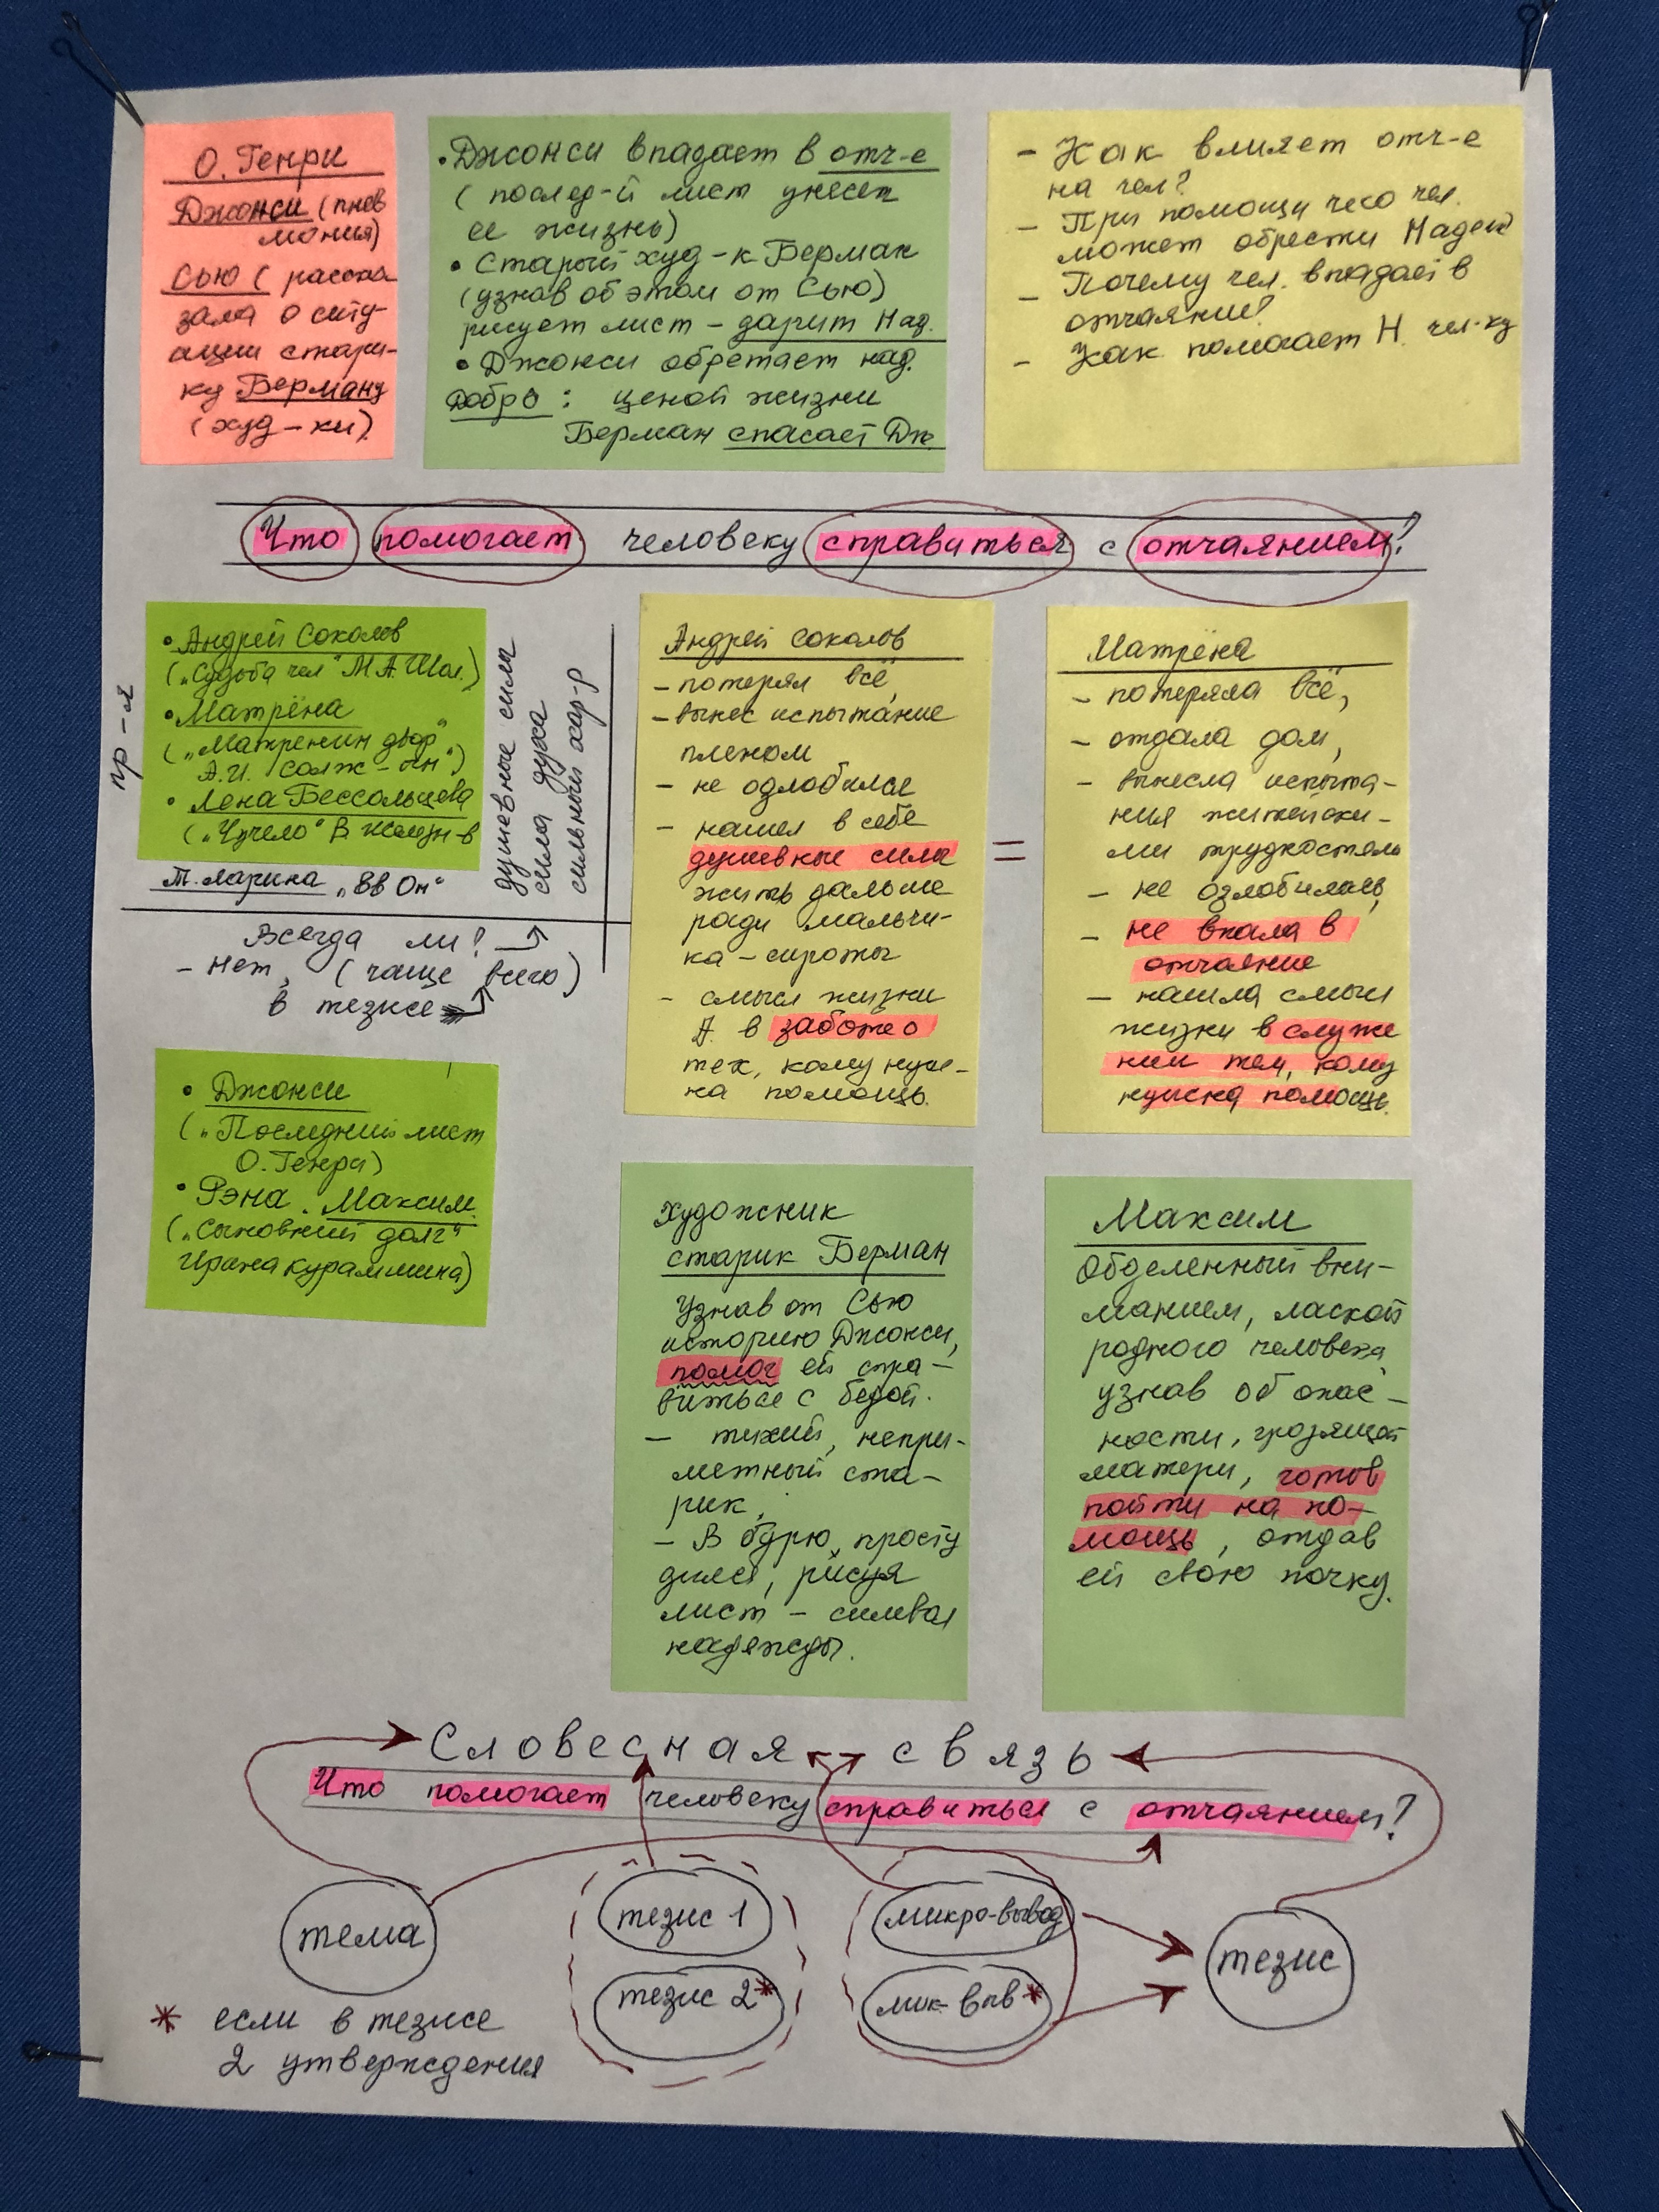 О. Генри
Джонси (пнев
мония)
Сью ( расска
зала о ситу-
ации стари-
ку Берману
(худ-ки).
• Джонси впадает в отч-е
( послед-й лист унесет
ее жизнь)
• Старый худ-к Берман
(узнав об этом от Сью)
рисует лист – дарит Над.
• Джонси обретает над.
Добро : ценой жизни
Берман спасает Дж.
– Как влияет отч-е
на чел?
– При помощи чего чел.
может обрести Надежд
– Почему чел. впадает в
отчаяние?
– Как помогает Н. чел-ку
Что помогает человеку справиться с отчаянием?
пр-я
• Андрей Соколов
(„Судьба чел" М.А. Шол.)
• Матрёна
(„Матренин двор"
А.И. Солж-ын")
• Лена Бессольцева
(„Чучело" В. Желез-в
Т. Ларина „ЕвОн"
душевные силы
сила духа
сильный хар-р
Всегда ли?
– Нет, (чаще всего)
в тезисе
Андрей Соколов
– потерял всё,
– вынес испытание
пленом
– не озлобился
– нашел в себе
душевные силы
жить дальше
ради мальчи-
ка – сироты
– смысл жизни
А. в заботе о
тех, кому нуж-
на помощь.
=
Матрёна
– потеряла всё,
– отдала дом,
– вынесла испыта-
ния житейски-
ми трудностями
– не озлобилась,
– не впала в
отчаяние
– нашла смысл
жизни в служе
нии тем, кому
нужна помощь.
• Джонси
(„Последний лист
О. Генри)
• Рэна. Максим.
(„Сыновний долг"
Ирина Курамшина)
Художник
старик Берман
Узнав от Сью
историю Джонси,
помог ей спра-
виться с бедой.
– тихий, непри-
метный ста-
рик,
– В бурю, просту
дился, рисуя
лист – символ
надежды.
Максим
Обделенный вни-
манием, лаской
родного человека,
узнав об опас-
ности, грозящей
матери, готов
пойти на по-
мощь, отдав
ей свою почку.
Словесная связь
Что помогает человеку справиться с отчаянием?
тема
тезис 1
тезис 2*
микро-вывод
мик-выв*
тезис
* если в тезисе
2 утверждения